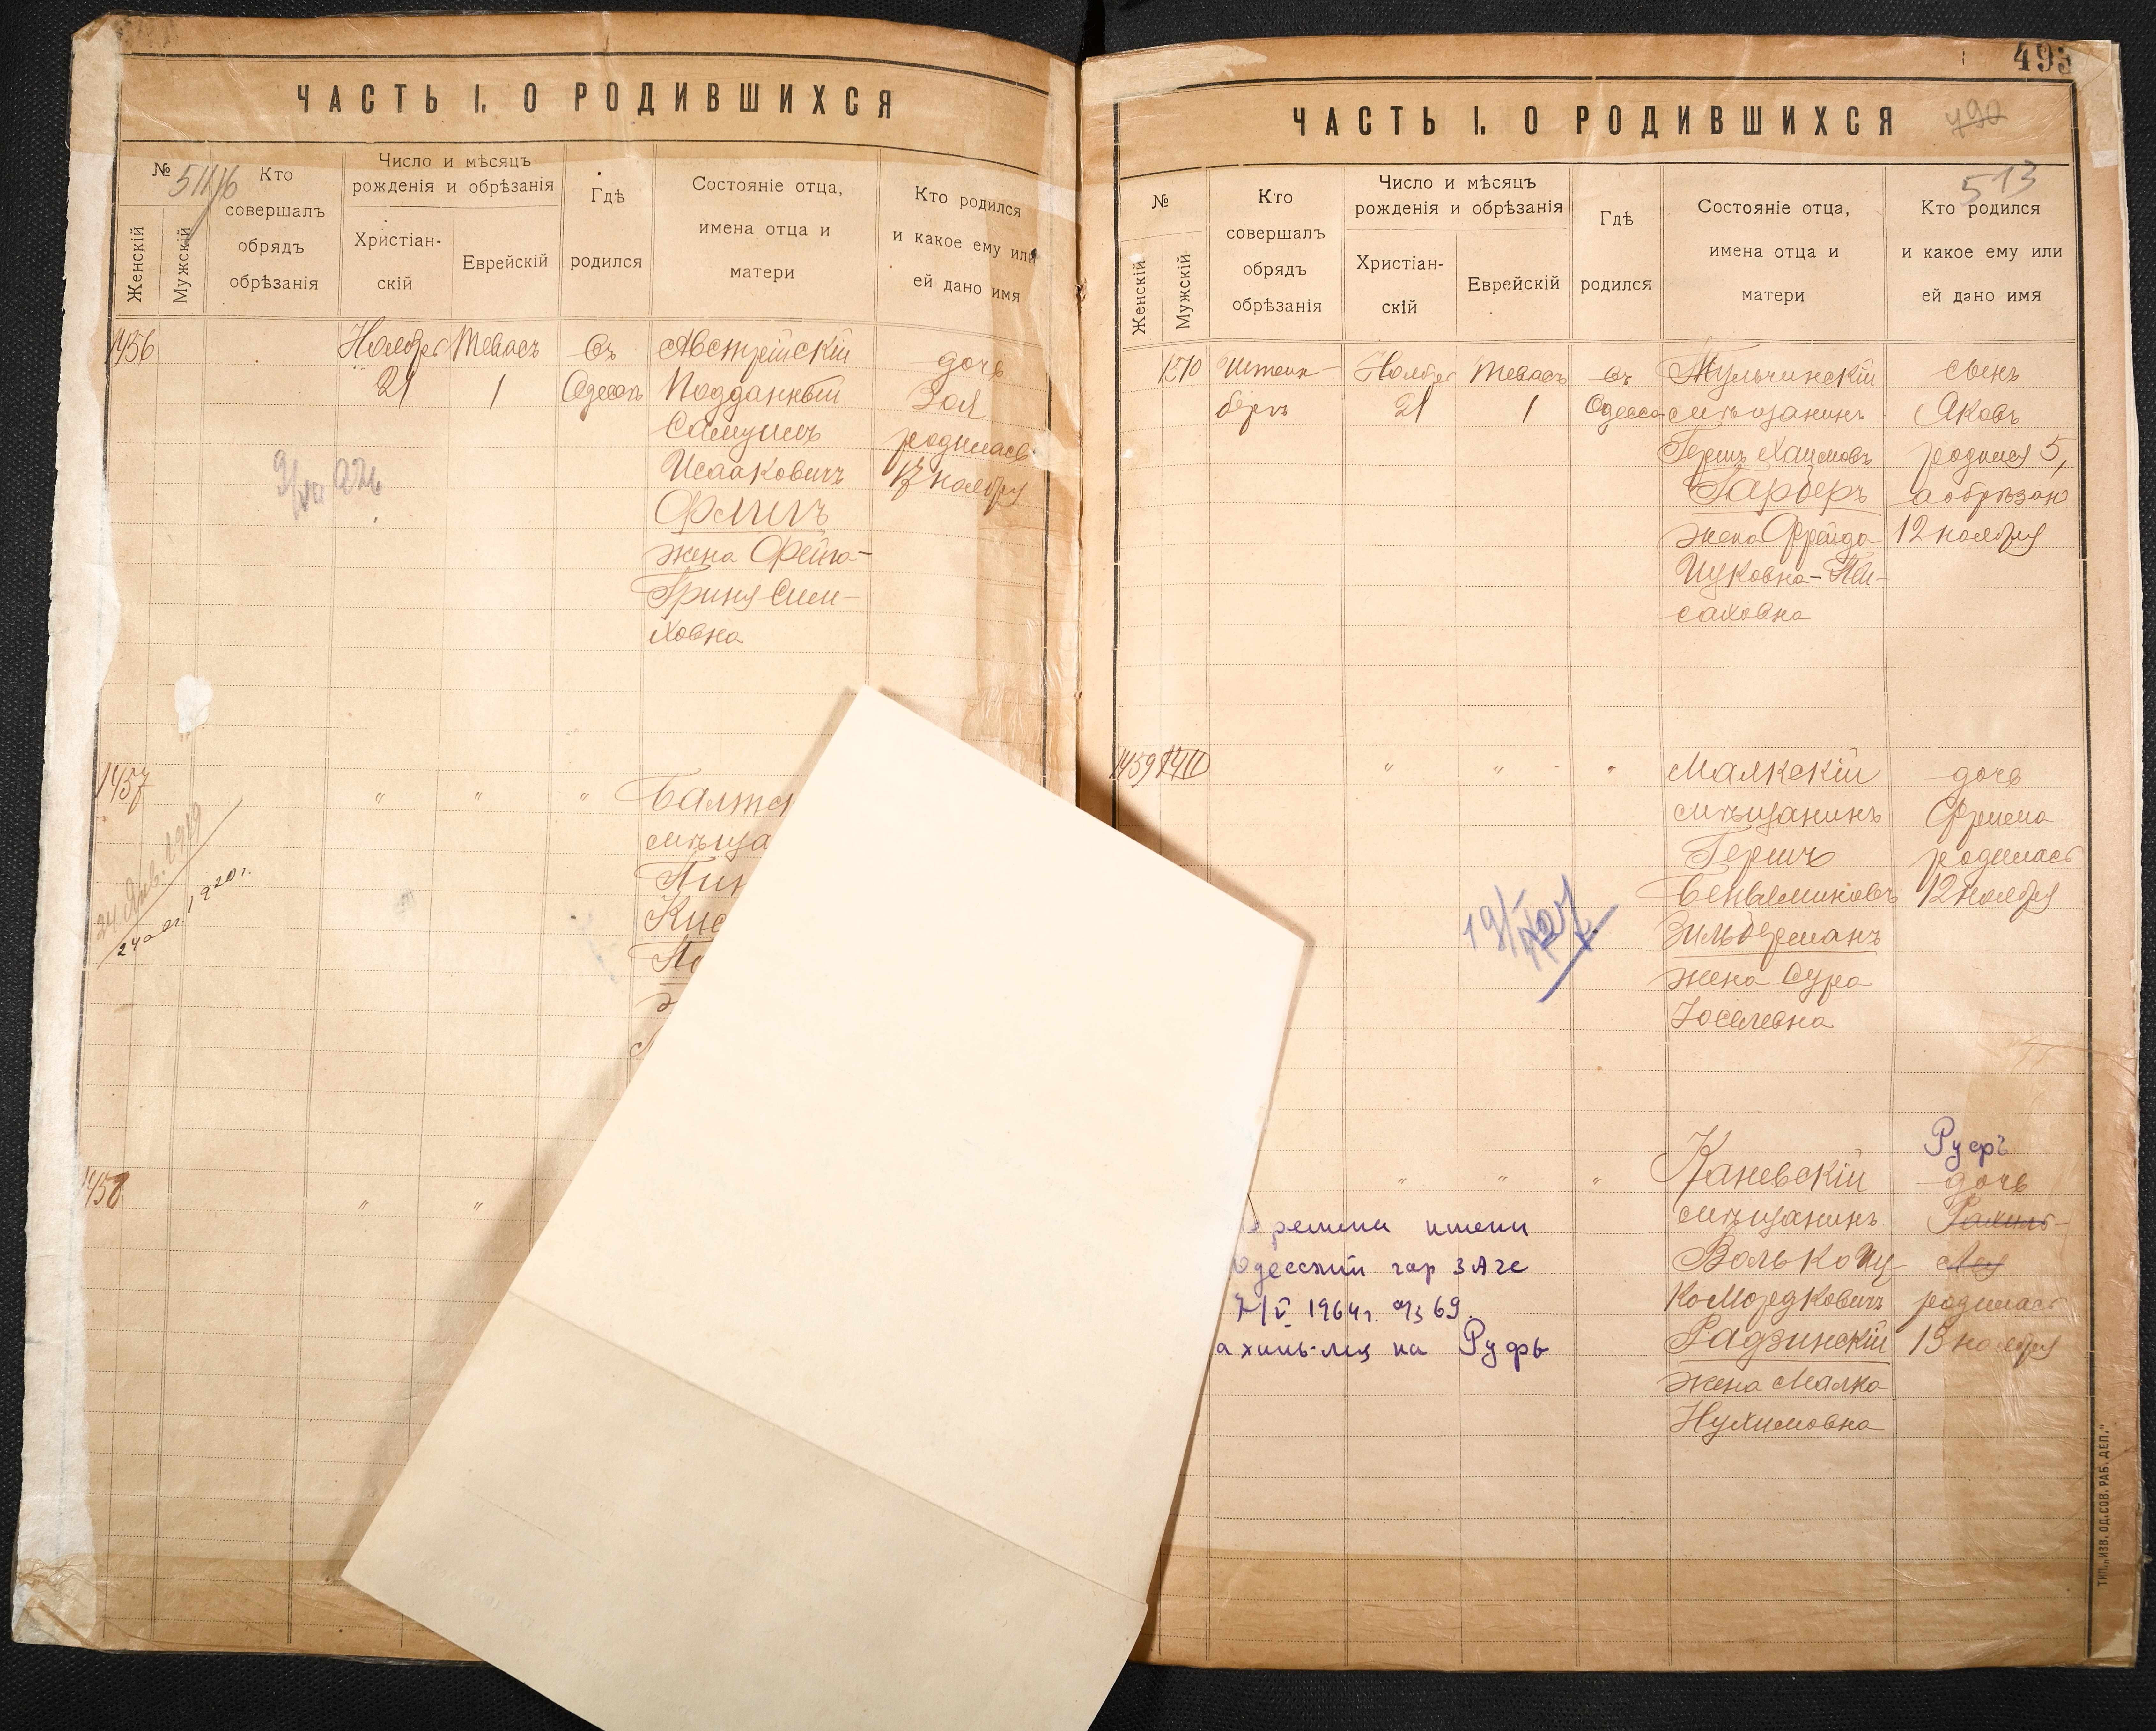 ЧАСТЬ I. О РОДИВШИХСЯ
№
Кто
совершалъ
обрядъ
обрѣзанія
Число и мѣсяцъ
рожденія и обрѣзанія
Христіан-
скій
Еврейскій
Гдѣ
родился
Состояніе отца,
имена отца и
матери
Кто родился
и какое ему или
ей дано имя
Женскій
Мужскій
1456
Ноября
21
Тевасъ
1
Въ
Одессѣ
Австрійскій
Подданный
Самуилъ
Исааковичъ
Флигъ
жена Фейга-
Гриня Сим-
ховна
дочь
Зоя
родилась
17 ноября
1457
24 Янв. 1919
1920 г.
" " "
мѣща
1458
" "
493
ЧАСТЬ I. О РОДИВШИХСЯ
490
513
№
Кто
совершалъ
обрядъ
обрѣзанія
Число и мѣсяцъ
рожденія и обрѣзанія
Христіан-
скій
Еврейскій
Гдѣ
родился
Состояніе отца,
имена отца и
матери
Кто родился
и какое ему или
ей дано имя
Женскій
Мужскій
1270
Штейн-
бергъ
Ноября
21
Тевасъ
1
Въ
Одессѣ
Тульчинскій
мѣщанинъ
Гершъ Хаимовъ
Гарберъ
жена Фрейда
Цуковна-Пей-
саховна
сынъ
Яковъ
родился 5,
а обрѣзан
12 ноября
1459
" " "
Малкскій
мѣщанинъ
Гершъ
Веньяминовъ
Зильберманъ
жена Сура
Іоселевна
дочь
Фрима
родилась
12 ноября
" " "
Каневскій
мѣщанинъ
Волько Иц-
ко Мордковичъ
Радзинскій
жена Малка
Нухимовна
Руфь
дочь
Рахиль-
Лея
родилась
13 ноября
имени
Одесский гор ЗАГС
7/V 1964г. 69
ахиль-лея на Руфь
ТИП. „ИЗВ. ОД. СОВ. РАБ. ДЕП."